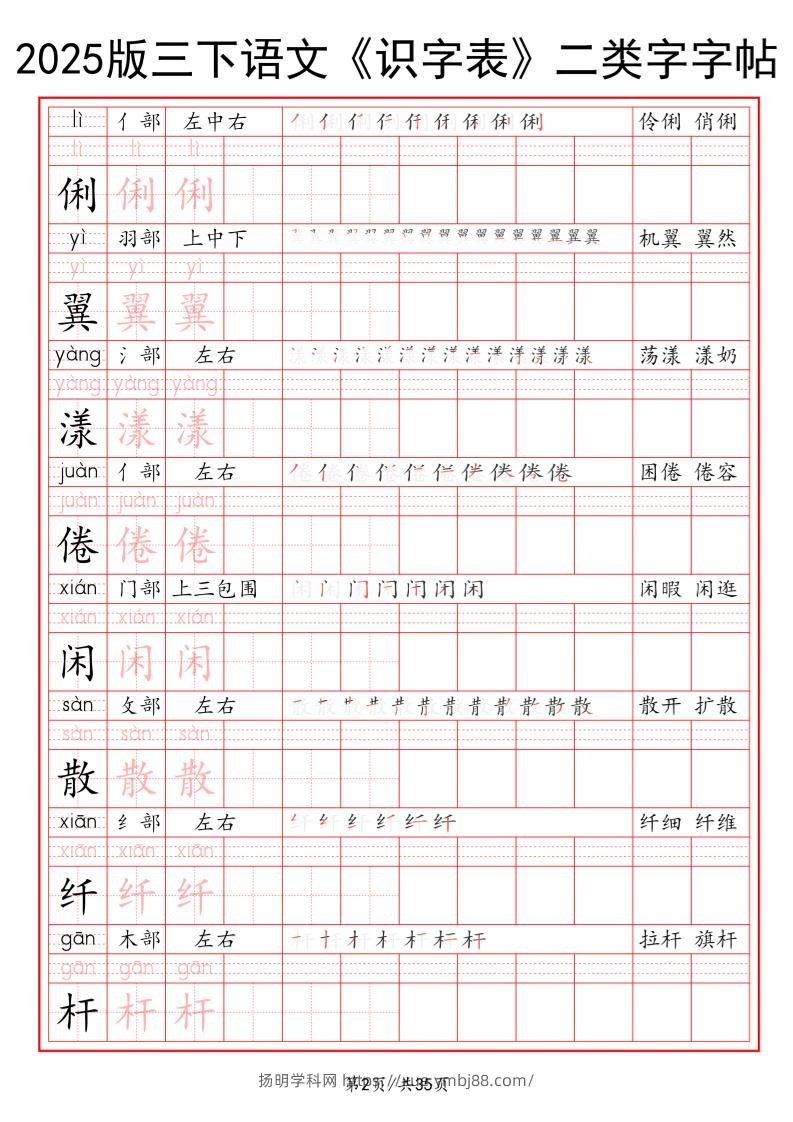 2025版三下语文《识字表》二类字字帖
lì 亻部 左中右 伶俐 俏俐
lì lì lì
俐 俐 俐
yì 羽部 上中下 机翼 翼然
yì yì yì
翼 翼 翼
yàng 氵部 左右 荡漾 漾奶
yàng yàng yàng
漾 漾 漾
juàn 亻部 左右 困倦 倦容
juàn juàn juàn
倦 倦 倦
xián 门部 上三包围 闲暇 闲逛
xián xián xián
闲 闲 闲
sàn 攵部 左右 散开 扩散
sàn sàn sàn
散 散 散
xiān 纟部 左右 纤细 纤维
xiān xiān xiān
纤 纤 纤
gān 木部 左右 拉杆 旗杆
gān gān gān
杆 杆 杆
第2页/共35页